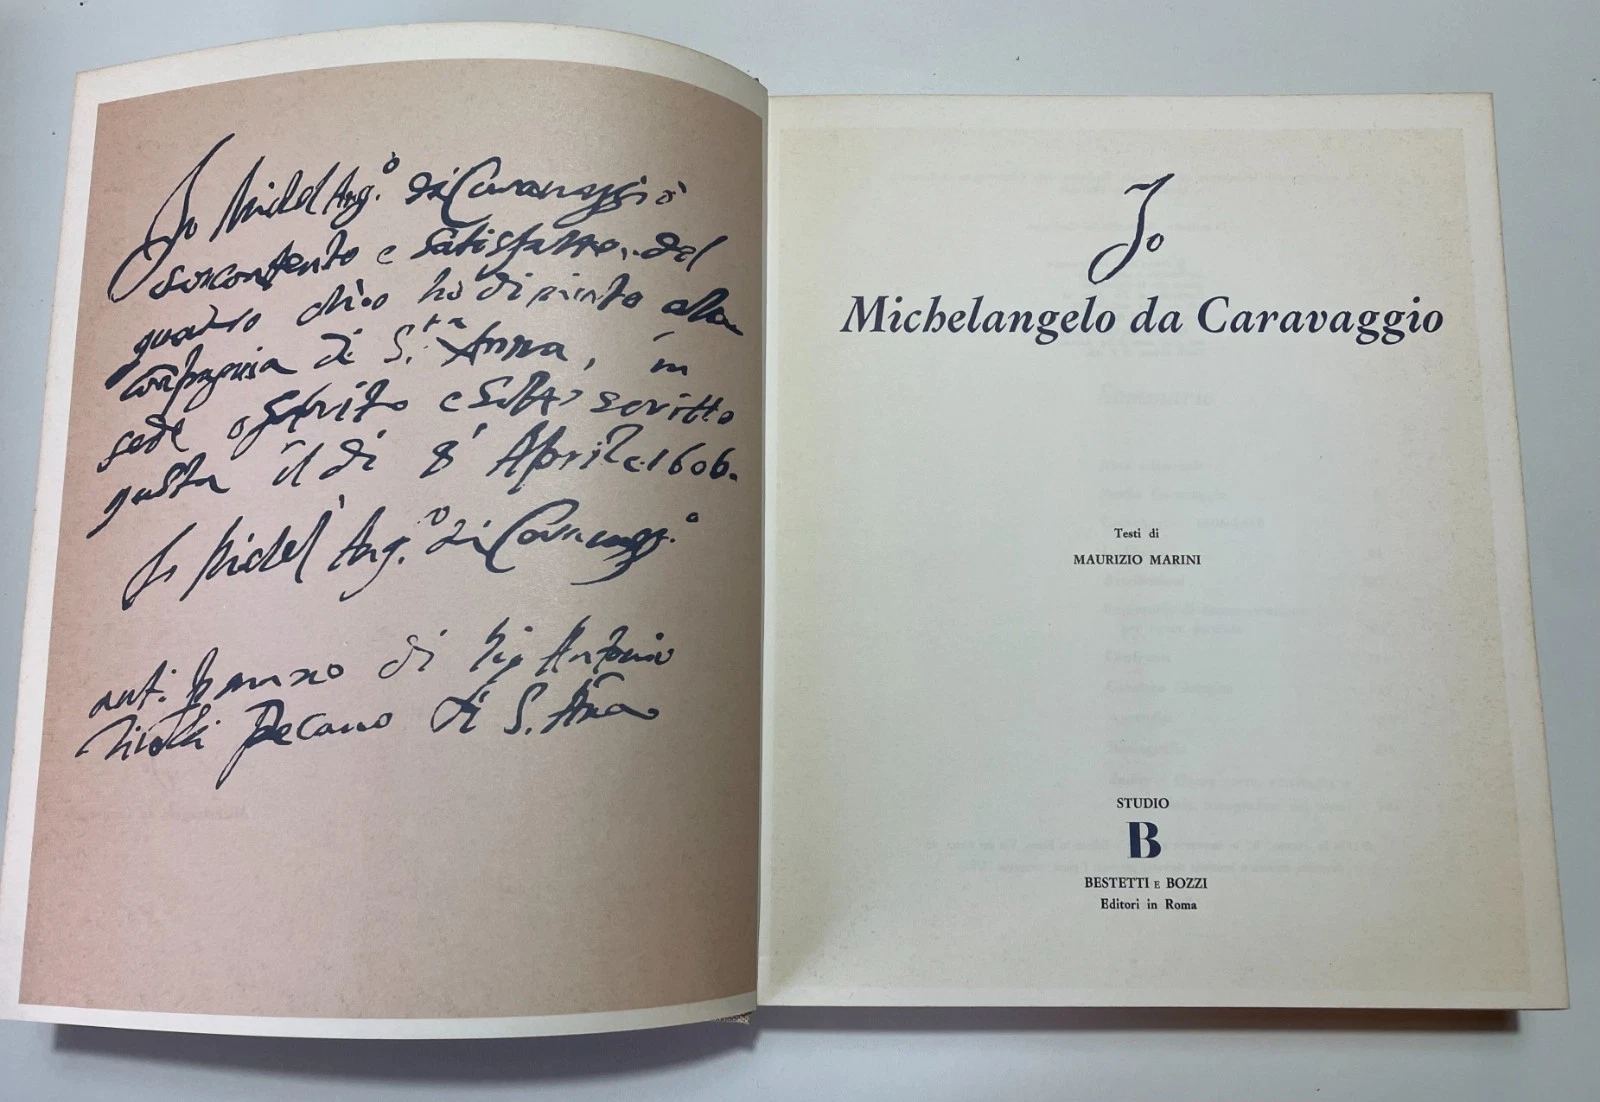 Io Michel Ang.o da Caravaggio
son contento e satisfatto del
quadro ch'io ho dipinto alla
Compagnia di S.ta Anna, in
fede o scritto e sotto scritto
questa il dì 8 Aprile 1606.
Io Michel Ang.o da Caravaggo
di Antonio
Decano di S. Anna
Io
Michelangelo da Caravaggio
Testi di
MAURIZIO MARINI
STUDIO
B
BESTETTI E BOZZI
Editori in Roma